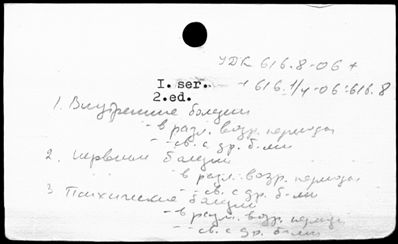 УДК 616.8-06 +
I. ser. + 616.1/4-06:616.8
2.ed.
1. Внутренние болезни
- в разл. возр. периоды
- св. с др. б-ми
2. Нервные болезни
в разл. возр. периоды
- св. с др. б-ми
3 Психические болезни
- в разл. возр. периоды
- св. с др. б-ми